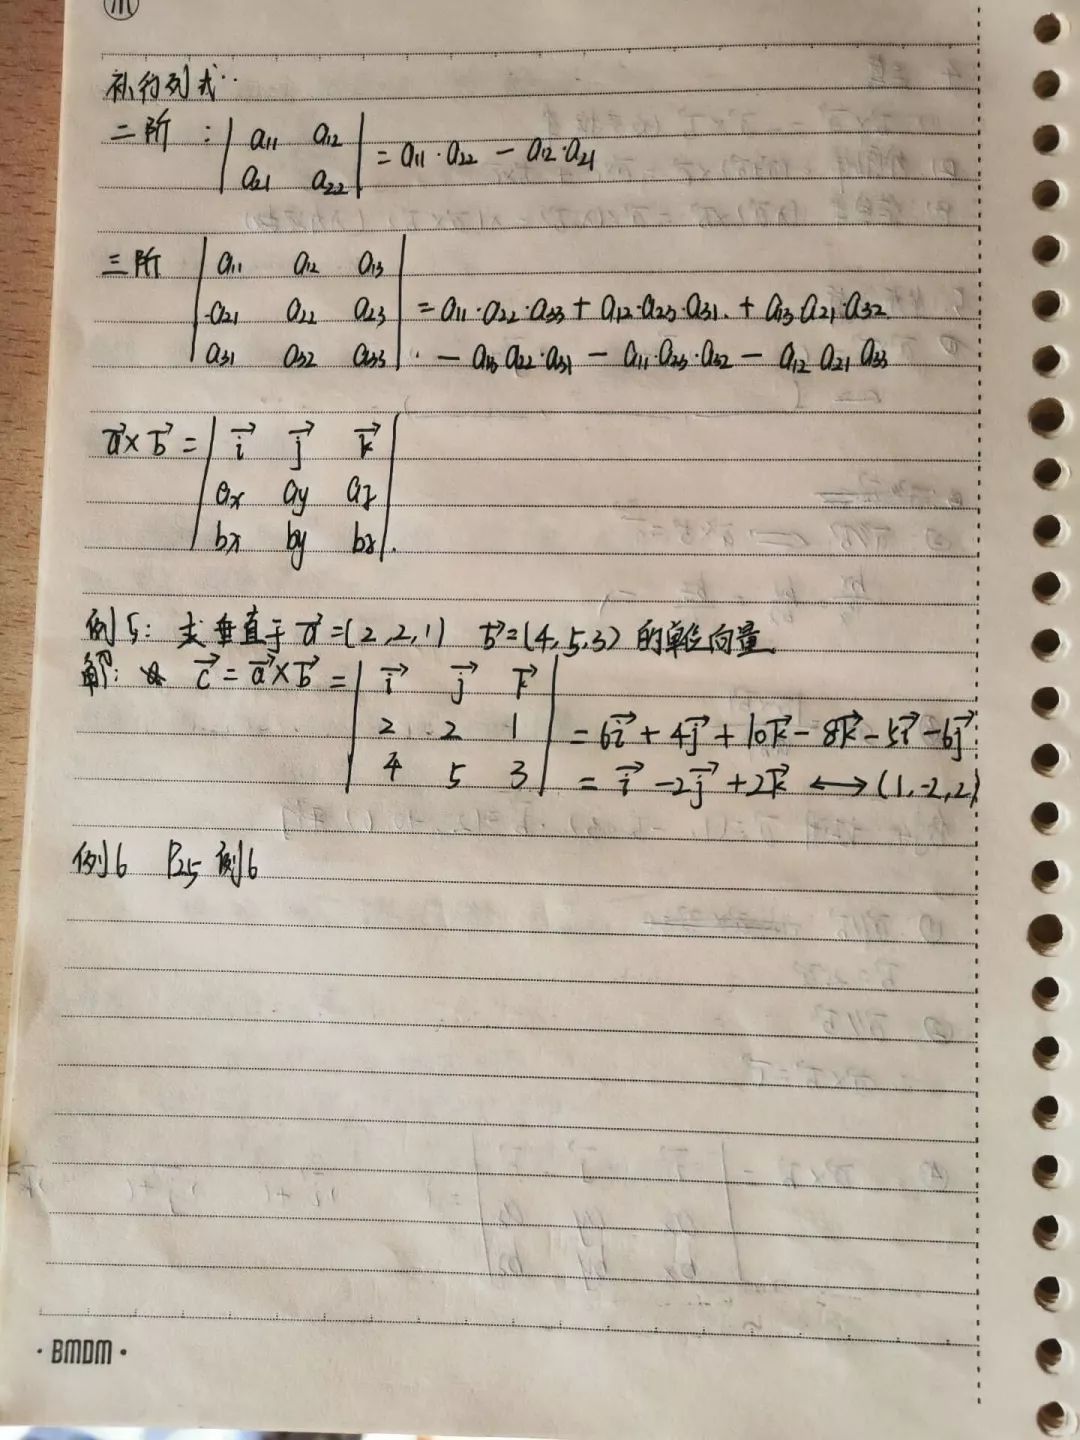 补行列式:
二阶: | a11 a12 |
| a21 a22 | = a11·a22 - a12·a21
三阶 | a11 a12 a13 |
| a21 a22 a23 | = a11·a22·a33 + a12·a23·a31 + a13 a21·a32
| a31 a32 a33 | - a13 a22·a31 - a11·a23·a32 - a12 a21 a33
a⃗×b⃗ = | i⃗ j⃗ k⃗ |
| ax ay az |
| bx by bz |
例5: 求垂直于 a⃗=(2,2,1) b⃗=(4,5,3) 的单位向量
解: c⃗ = a⃗×b⃗ = | i⃗ j⃗ k⃗ |
| 2 2 1 | = 6i⃗ + 4j⃗ + 10k⃗ - 8k⃗ - 5i⃗ - 6j⃗
| 4 5 3 | = i⃗ - 2j⃗ + 2k⃗ ⟷ (1,-2,2)
例6 P25 例6
· BMDM ·